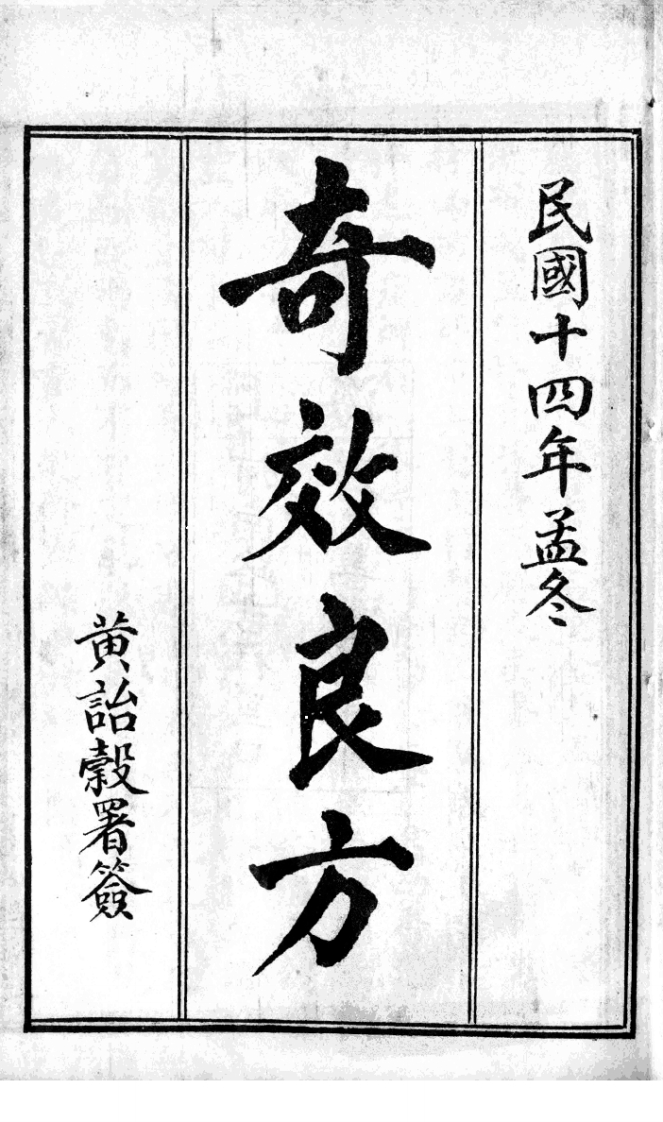 民國十四年孟冬
奇效良方
黄詒穀署簽